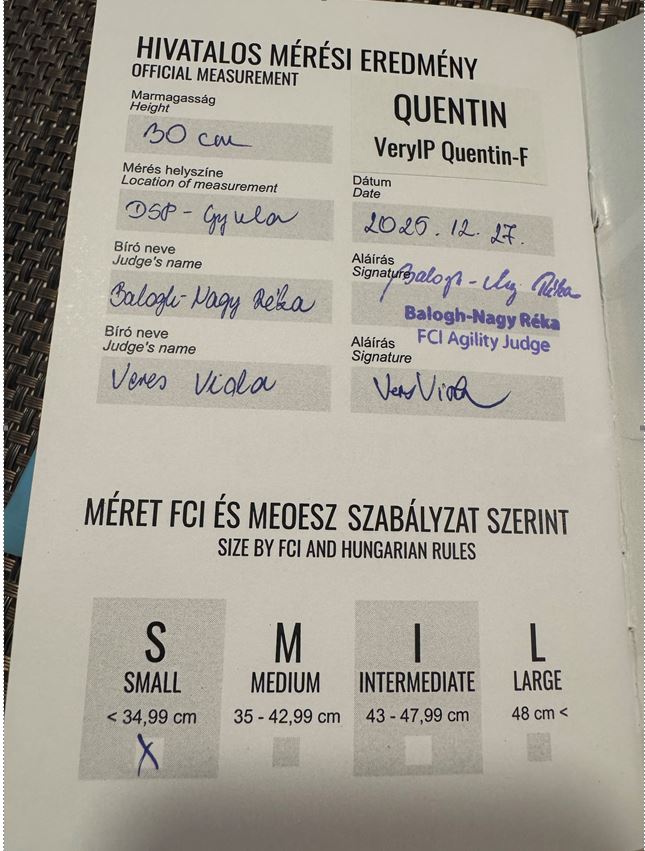 HIVATALOS MÉRÉSI EREDMÉNY
OFFICIAL MEASUREMENT
Marmagasság
Height
30 cm
QUENTIN
VeryIP Quentin-F
Mérés helyszíne
Location of measurement
DSP - Gyula
Dátum
Date
2025. 12. 27.
Bíró neve
Judge's name
Balogh-Nagy Réka
Aláírás
Signature
Balogh-Ng Réka
Balogh-Nagy Réka
FCI Agility Judge
Bíró neve
Judge's name
Veres Viola
Aláírás
Signature
Veres Viola
MÉRET FCI ÉS MEOESZ SZABÁLYZAT SZERINT
SIZE BY FCI AND HUNGARIAN RULES
S
SMALL
< 34,99 cm
X
M
MEDIUM
35 - 42,99 cm
I
INTERMEDIATE
43 - 47,99 cm
L
LARGE
48 cm <